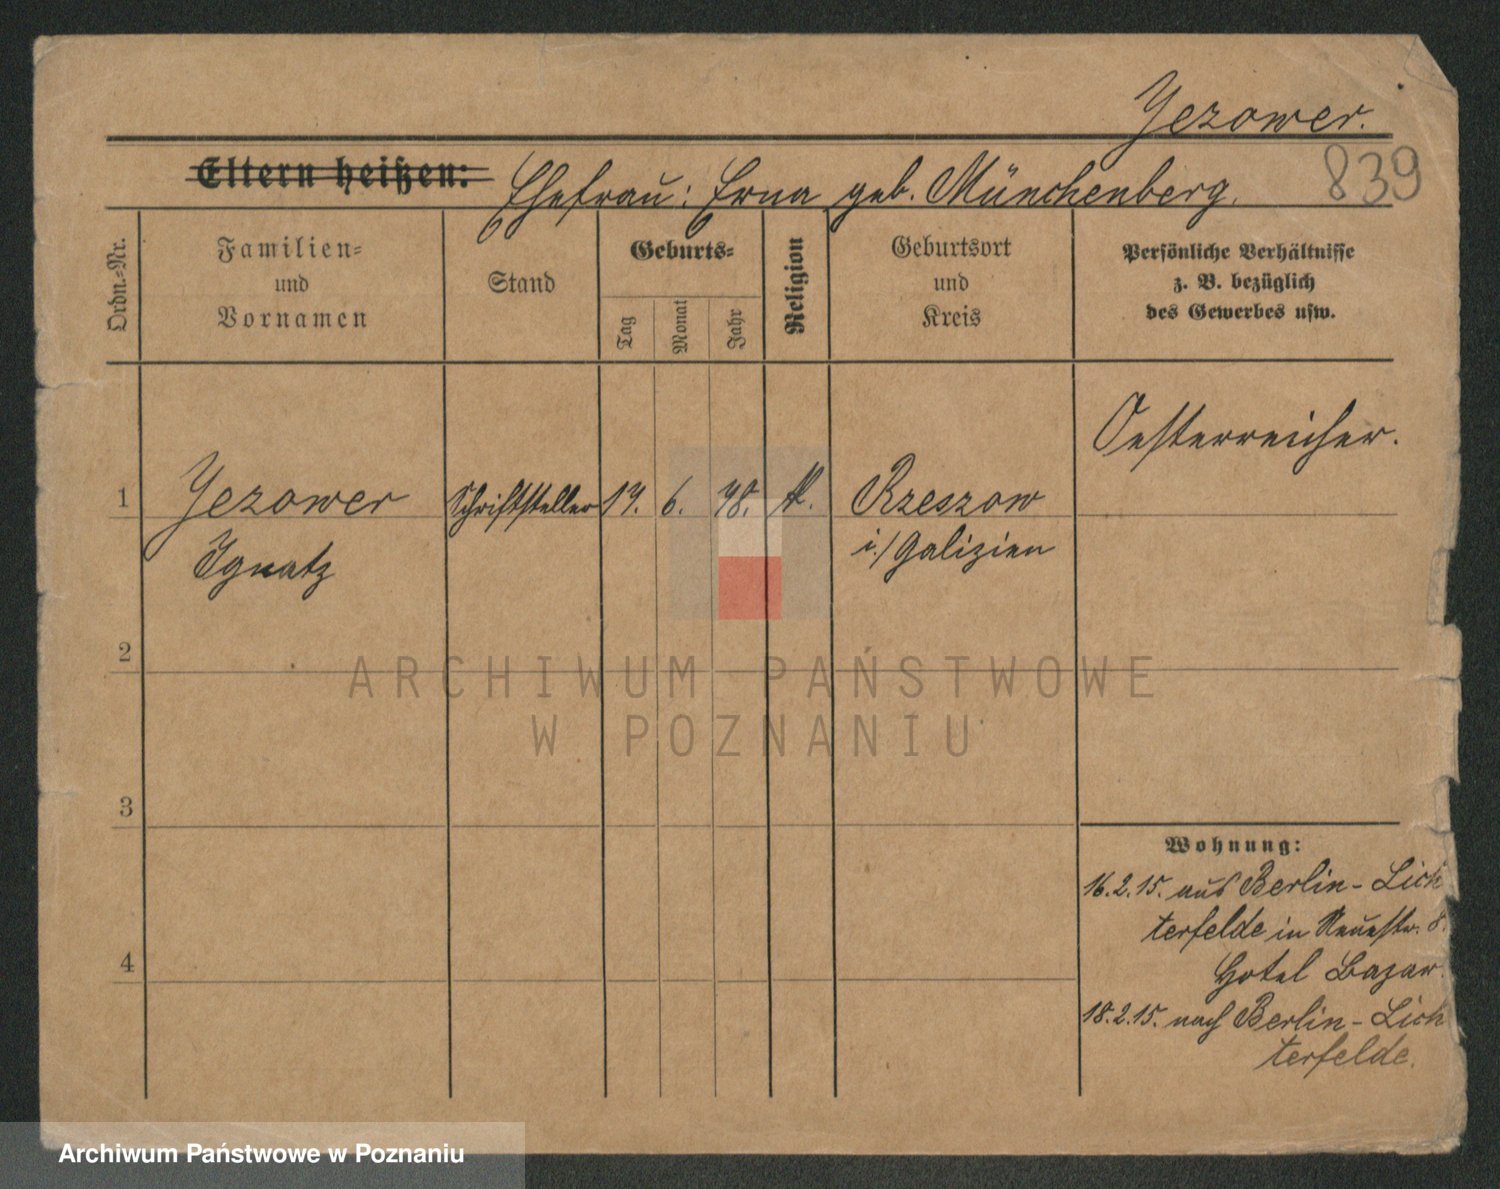 Jezower.
839
Eltern heißen:
Ehefrau: Erna geb. Münchenberg.
Ordn.-Nr.
Familien-
und
Vornamen
Stand
Geburts-
Tag
Monat
Jahr
Religion
Geburtsort
und
Kreis
Persönliche Verhältnisse
z. B. bezüglich
des Gewerbes usw.
Oesterreicher.
1 Jezower Schriftsteller 17. 6. 78. Rzeszow
Ignatz i./Galizien
2
ARCHIWUM PAŃSTWOWE
W POZNANIU
3
Wohnung:
16.2.15. aus Berlin-Lich
terfelde in Neuestr. 8.
Hotel Bazar.
4
18.2.15. nach Berlin-Lich
terfelde.
Archiwum Państwowe w Poznaniu